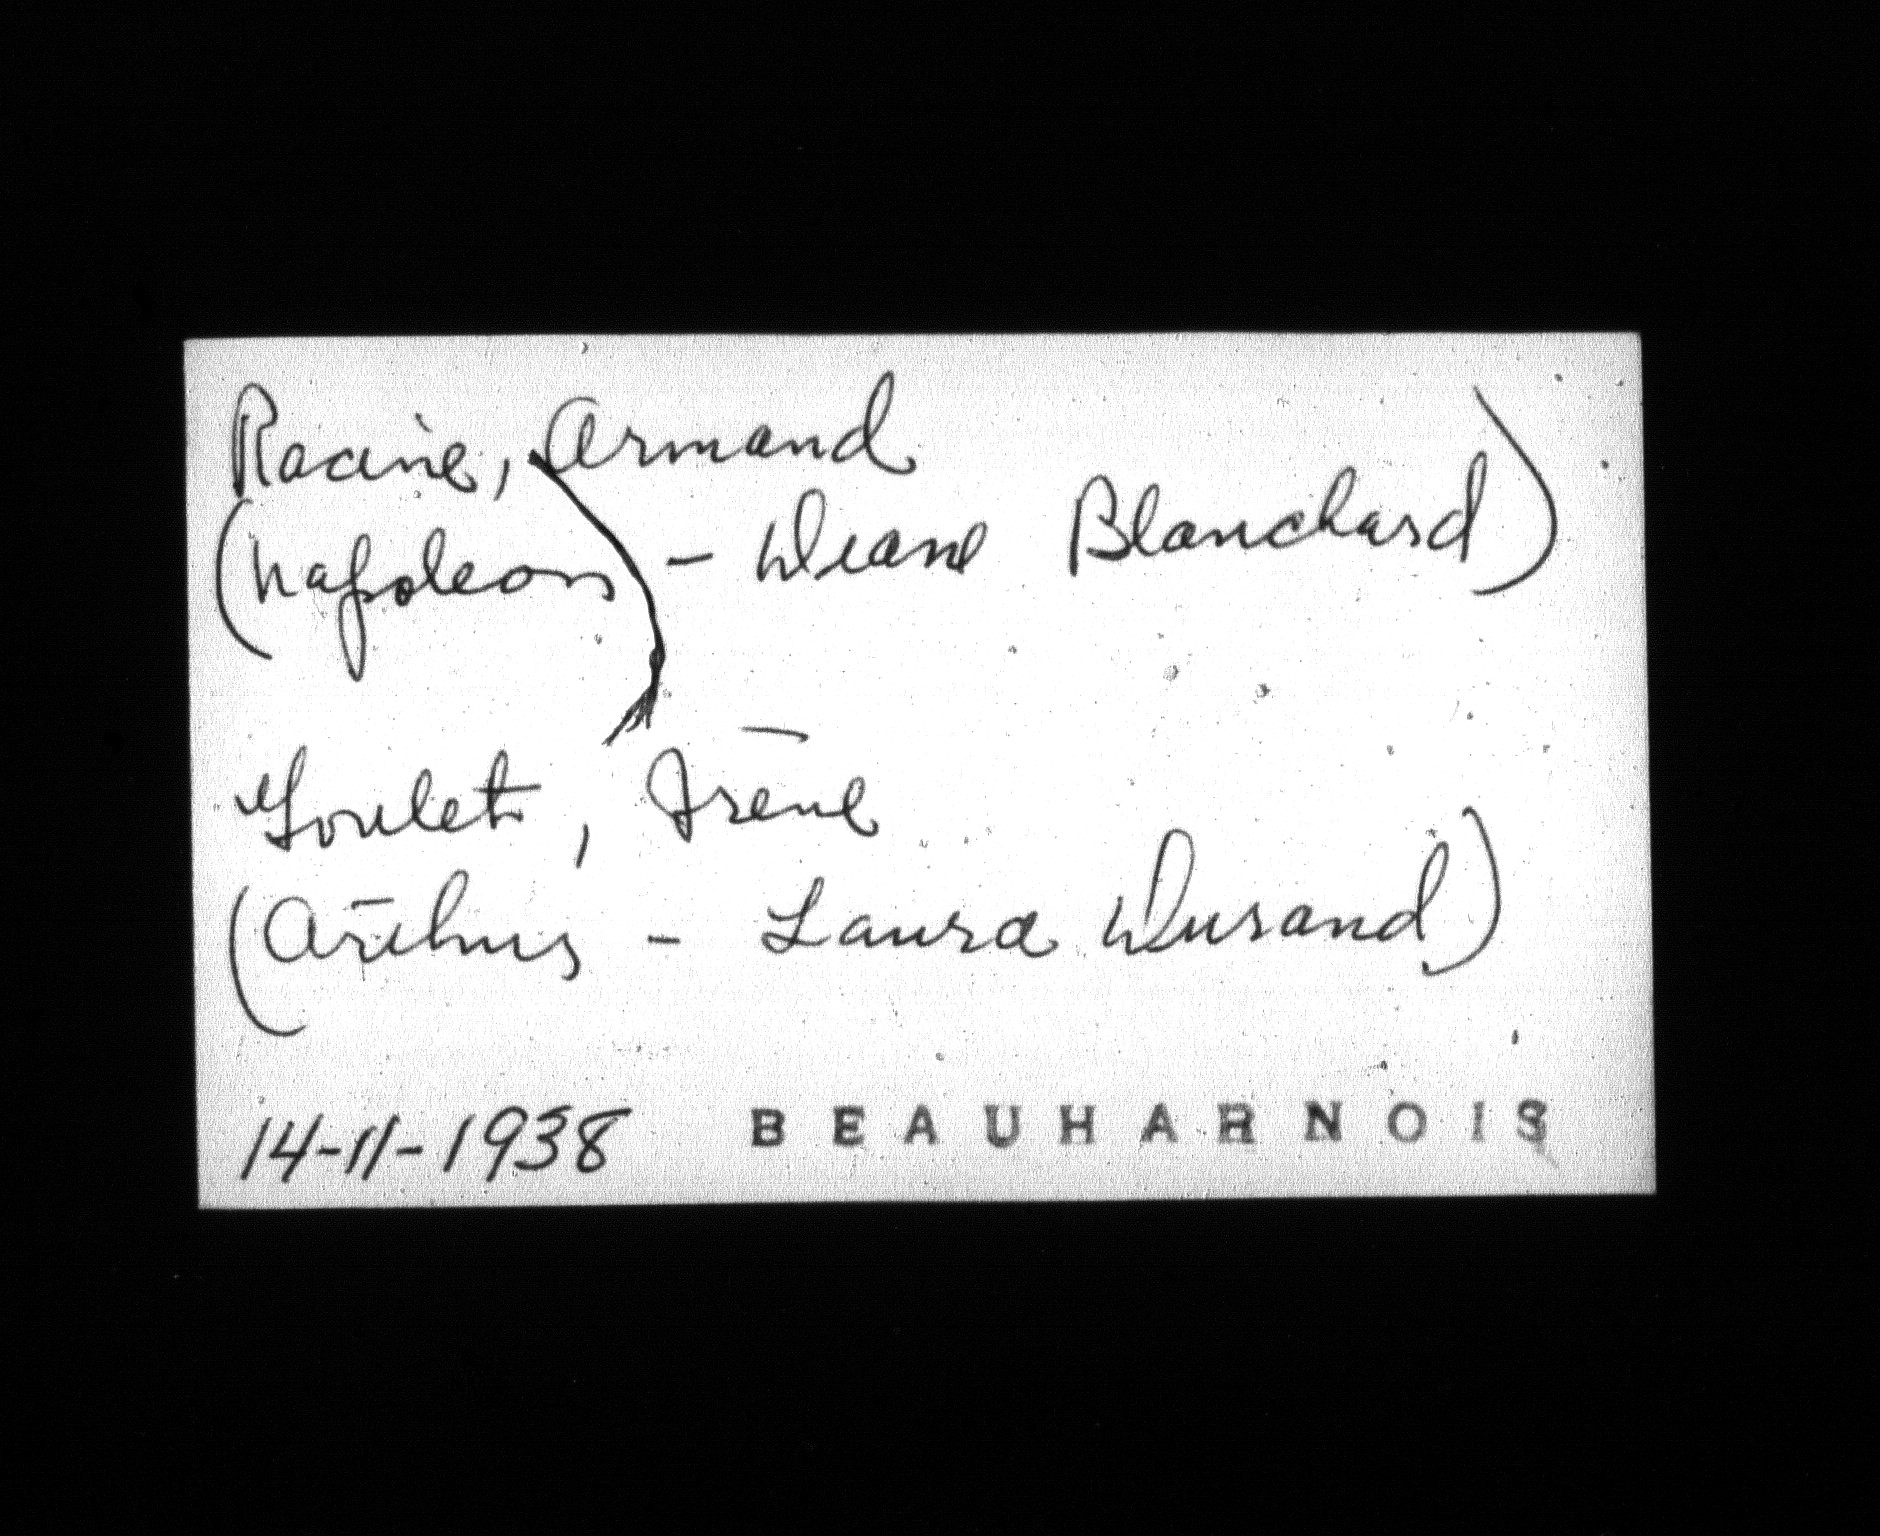 Racine, Armand
(Napoleon - Diane Blanchard)
Goulet, Irène
(Arthur - Laura Durand)
14-11-1938 BEAUHARNOIS